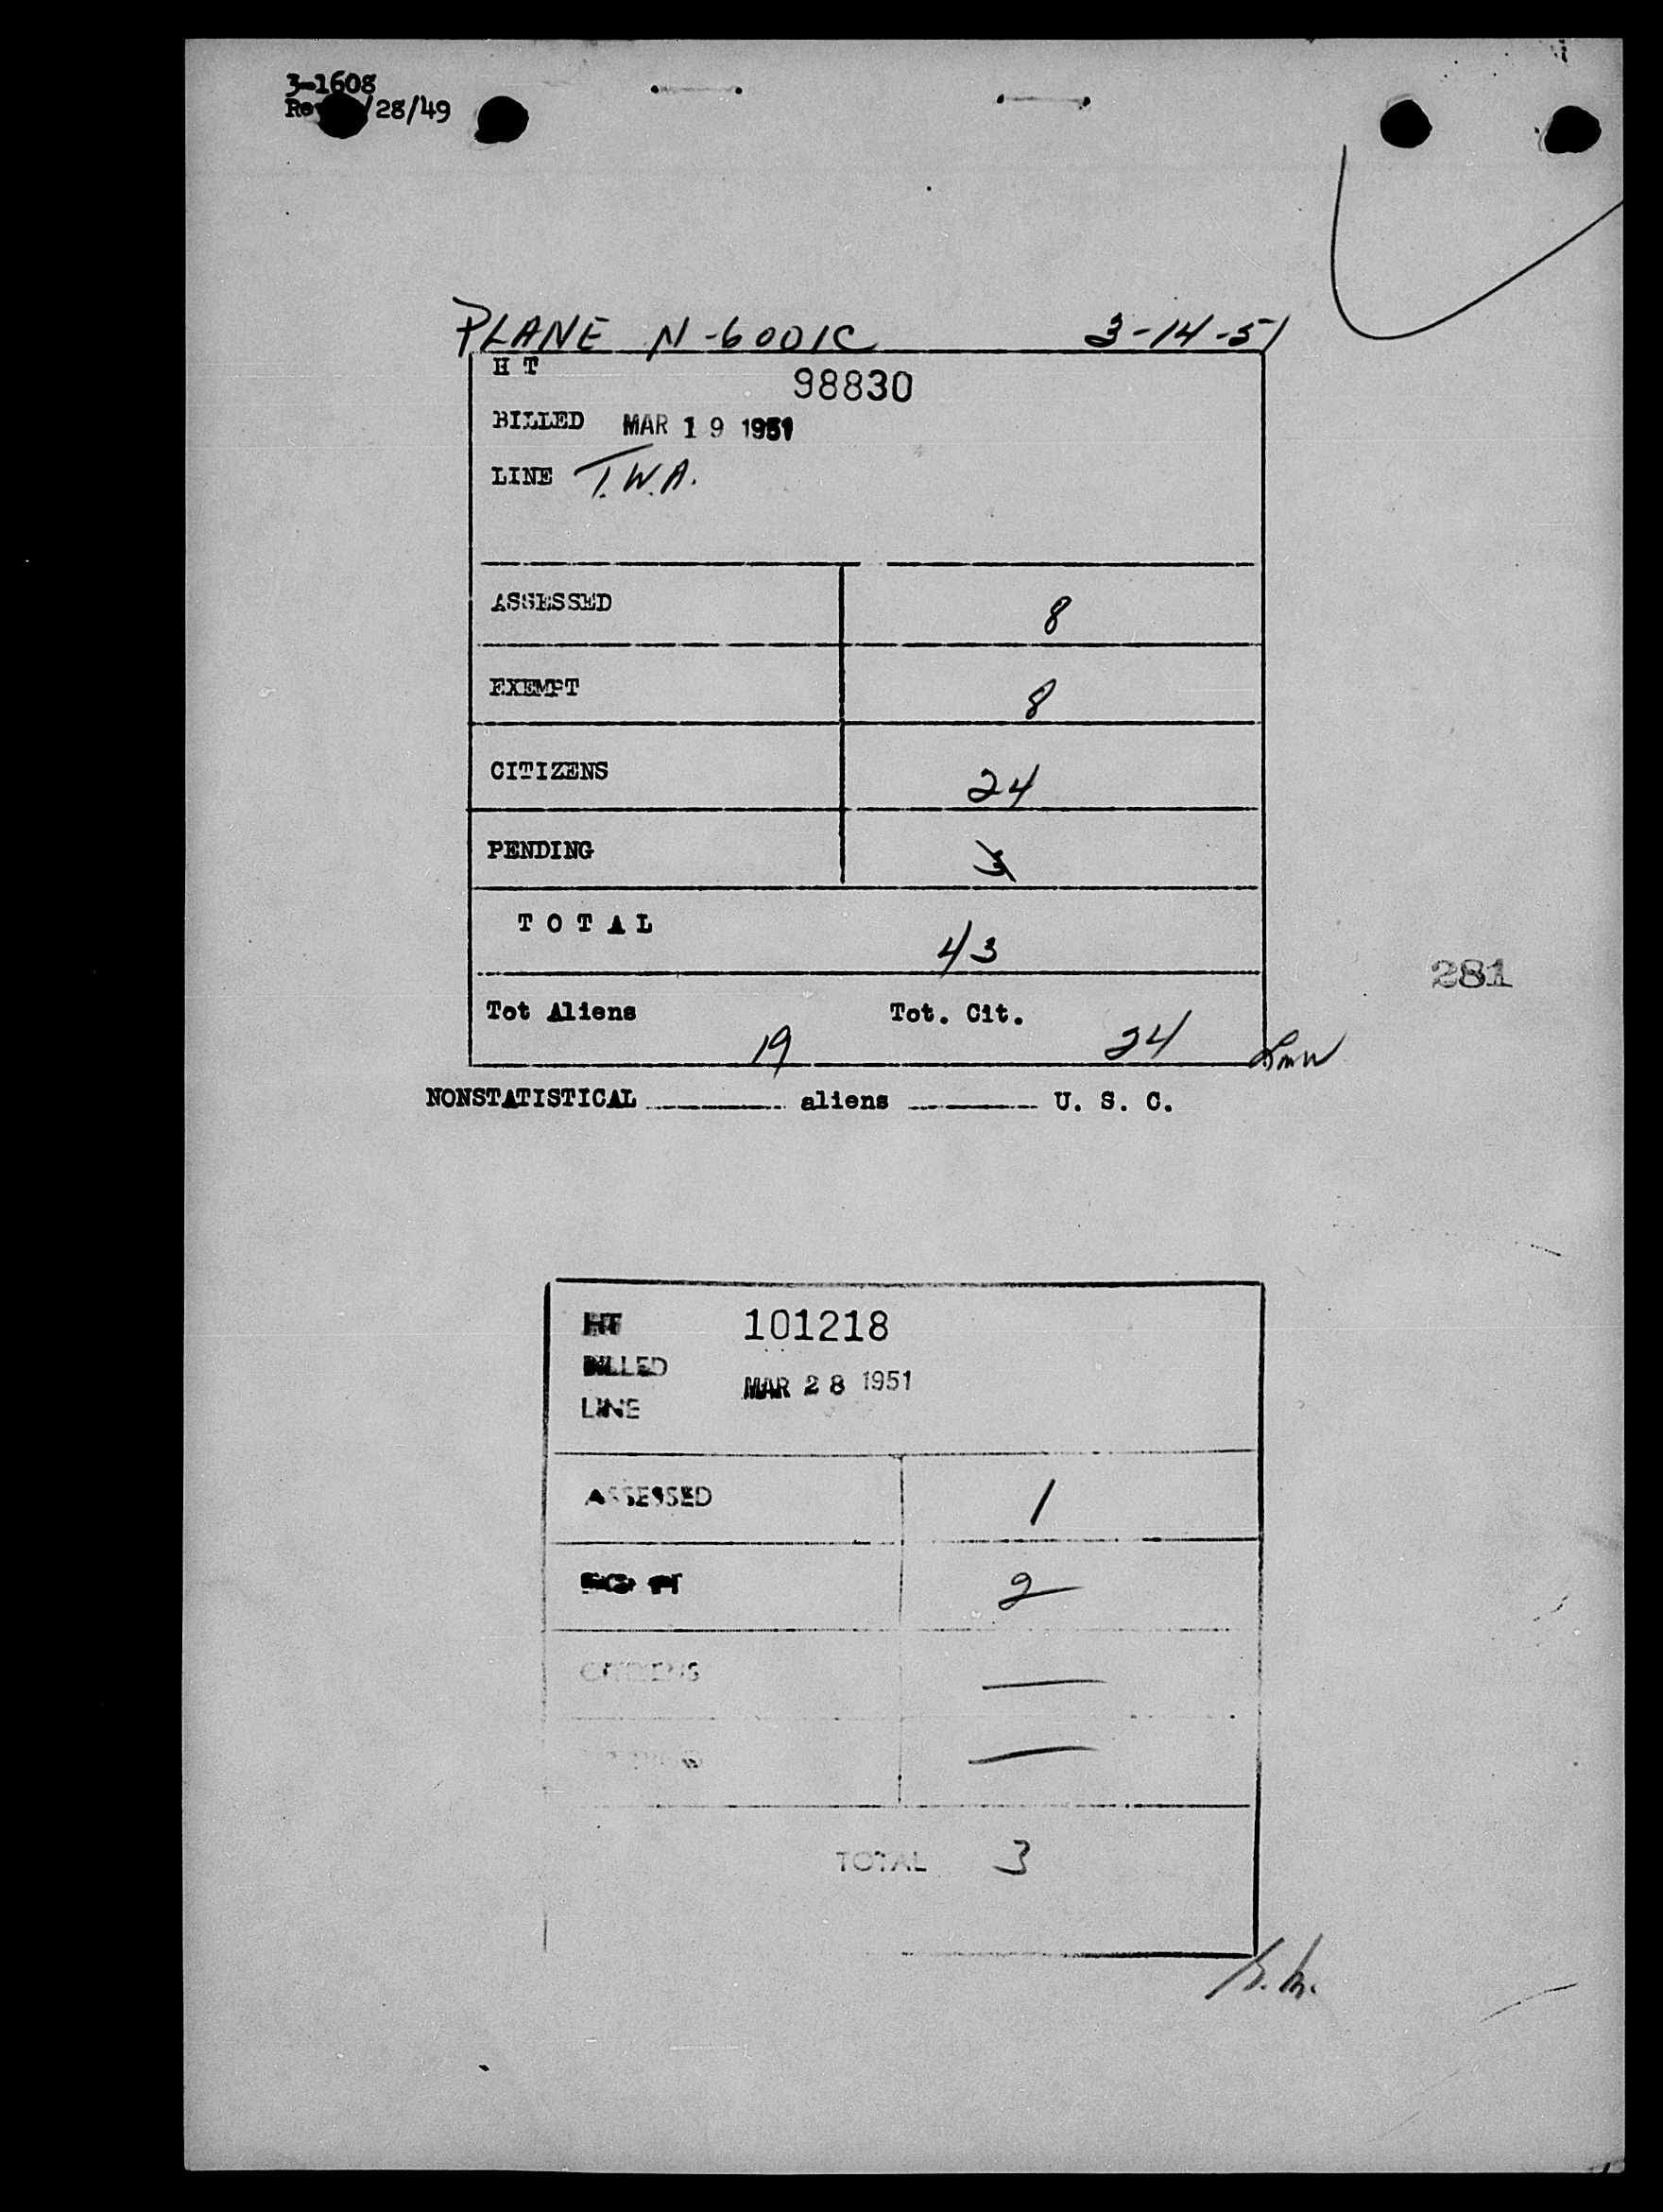 3-1608
Rev /28/49
PLANE N-6001C 3-14-51
H T 98830
BILLED MAR 19 1951
LINE T.W.A.
ASSESSED 8
EXEMPT 8
CITIZENS 24
PENDING 3
TOTAL 43
281
Tot Aliens 19 Tot. Cit. 24
NONSTATISTICAL aliens U. S. C.
HT 101218
BILLED MAR 28 1951
LINE
ASSESSED 1
2
CITIZENS
TOTAL 3